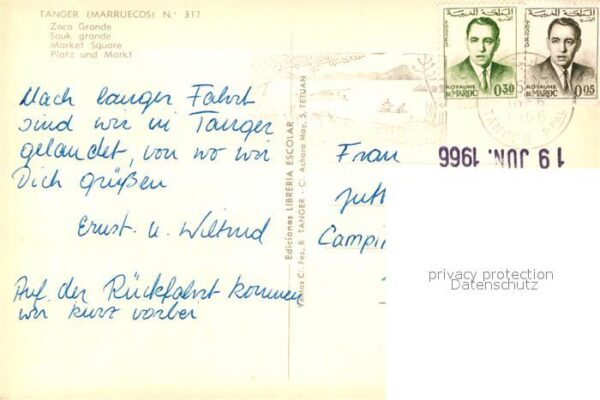 TANGER (MARRUECOS) N.° 317
Zoco Grande
Souk grande
Market Square
Platz und Markt
Nach langer Fahrt
sind wir in Tanger
gelandet, von wo wir
Dich grüßen
Ernst u. Wiltrud
Auf der Rückfahrt kommen
wir kurz vorbei
Ediciones LIBRERIA ESCOLAR
Ventas C/. Fez, 8 TANGER - C/. Achara May, 5, TETUAN
المملكة المغربية
ROYAUME
DU MAROC
0,30
المملكة المغربية
ROYAUME
DU MAROC
0,05
TANGER
1966
19 JUN. 1966
Frau
Jutt
Campin
privacy protection
Datenschutz